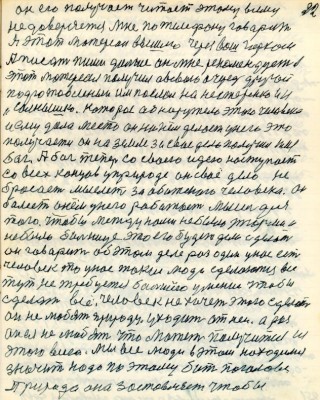 он его получает читает этому всему
недоверчется. мне по телефону говорит
я этот материал вышлю через ваш горисполком
А писать пиши дальше он мне рекомендует
этот материал получил а свою очередь другой
подготовленный им послал на
Которое обнаружело этого человека
и ему дало место он на нём делает у него это
получается он на земле за своё дело получил имя
Бог. А Бог теперь со своею идеею наступает
со всех концов у природе он своё дело не
бросает мыслит за обиженого человека. он
болеет о нём у него работает мысль для
того, чтобы между нами не было тюрьмы и
не было больнице это его будет дело сделает
он говорит об этом деле раз один у нас есть
человек то у нас такие люди сделаются все
тут не требуется большого умение чтобы
сделать всё, человек не хочет этого сделать
он не любит природу уходит от неи. а раз
она не любят что может получится из
этого всего. Мы все люди в этом находимся
значить надо по этому быть
Природа она заставляет чтобы